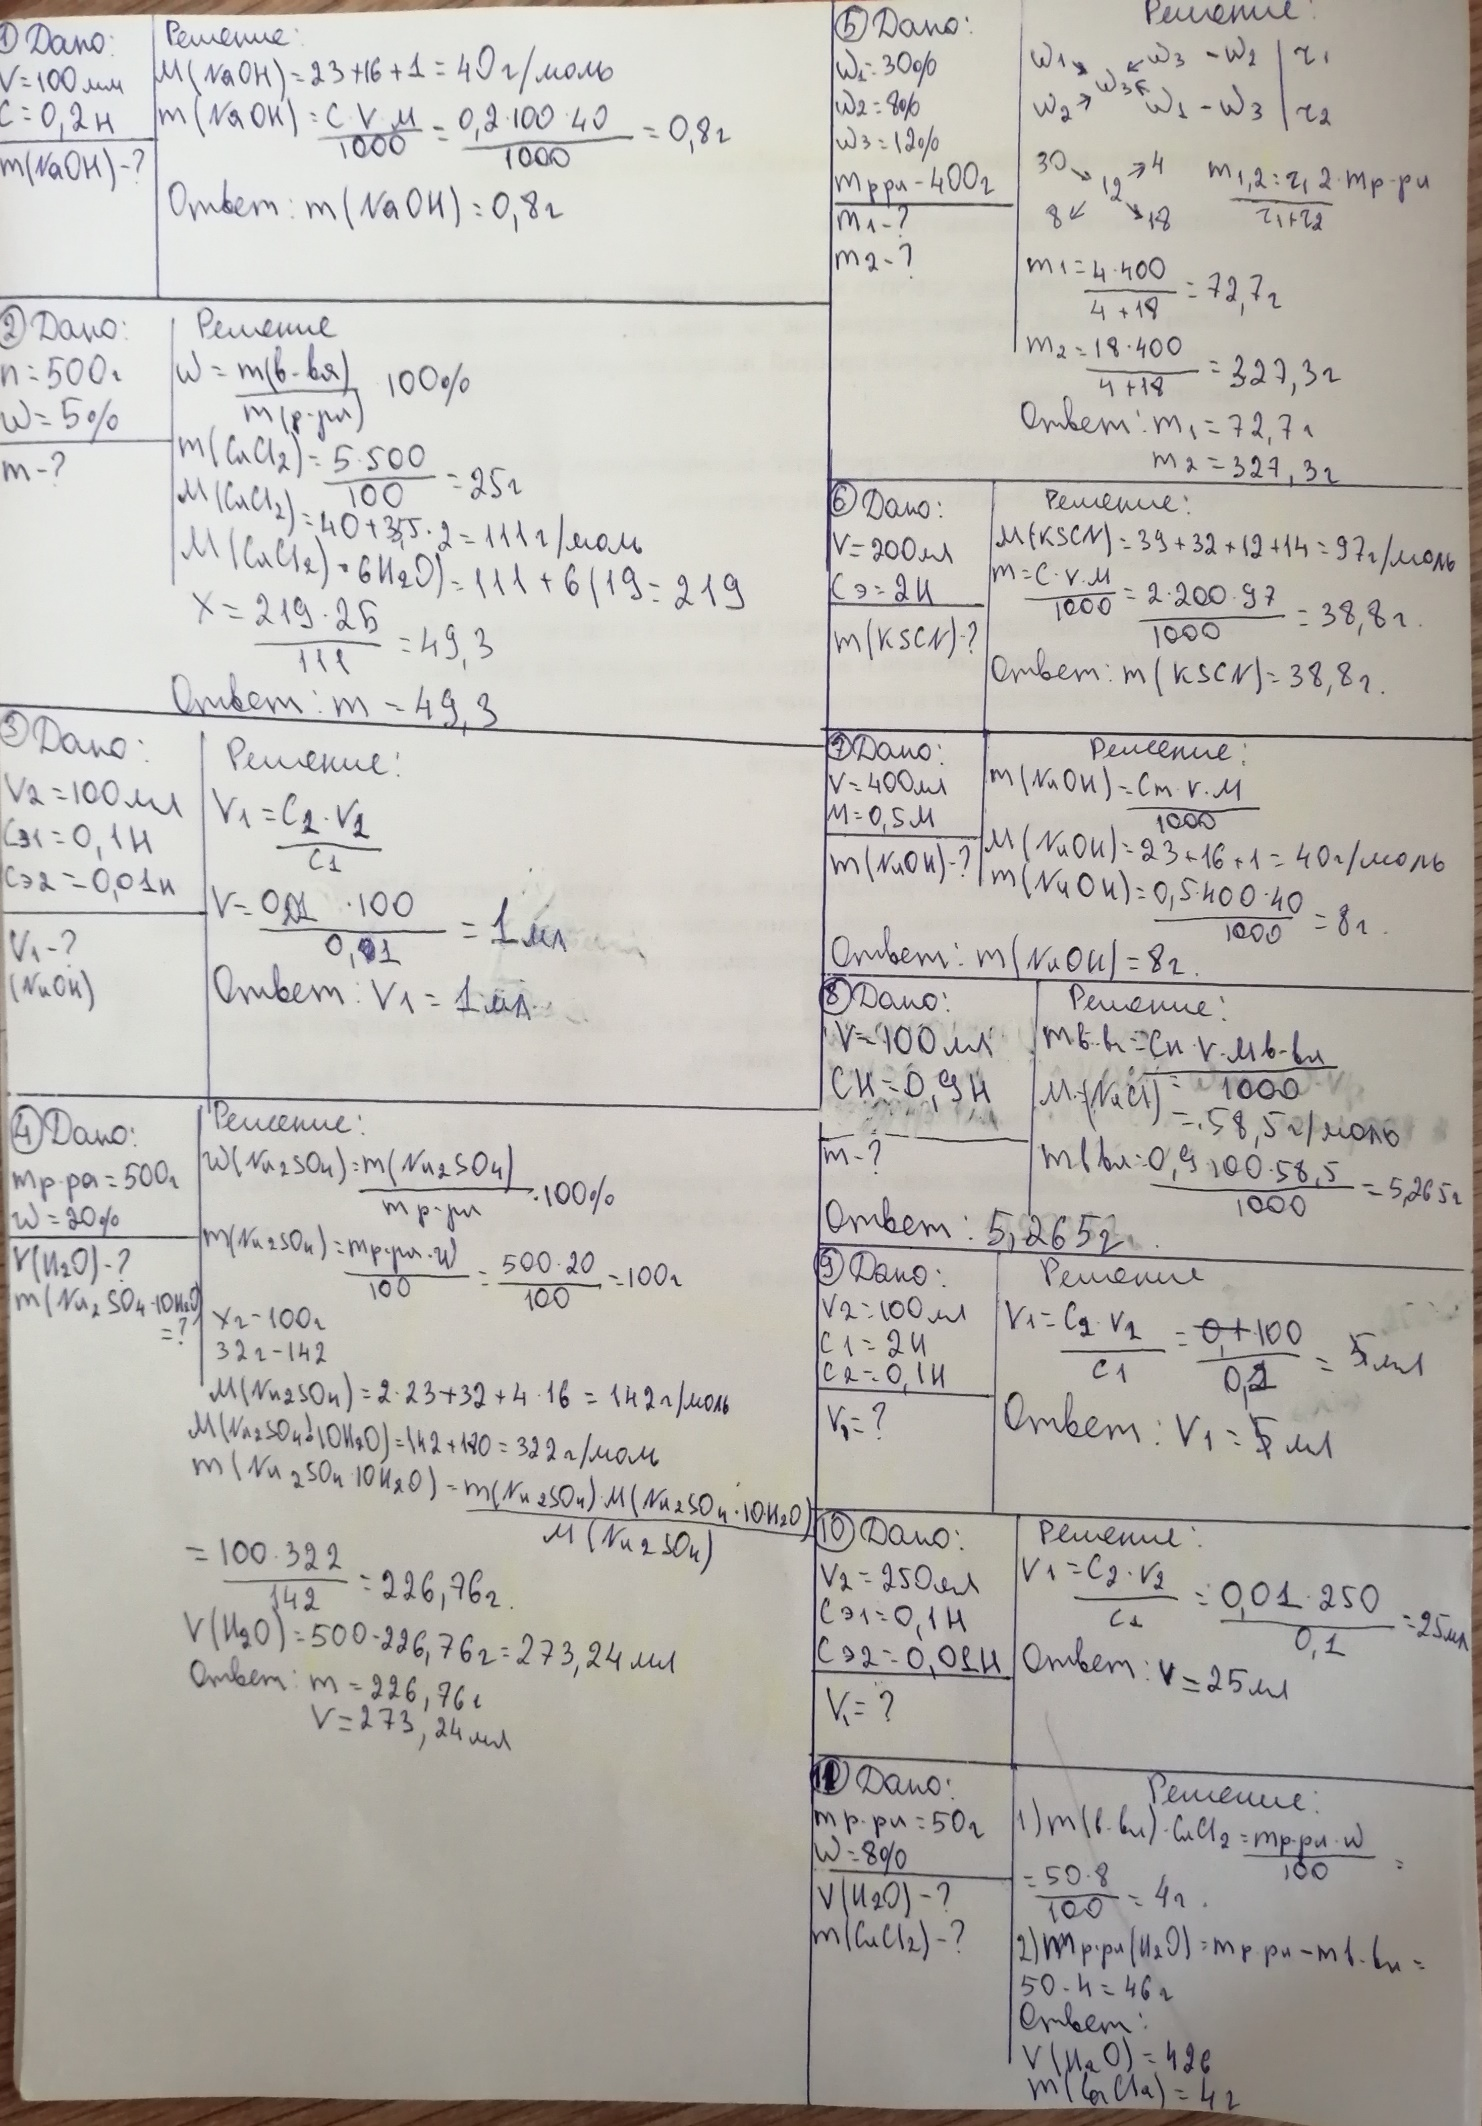 ① Дано:
V=100мл
C=0,2н
m(NaOH)-?
Решение:
M(NaOH)=23+16+1=40г/моль
m(NaOH)=C·V·M/1000=0,2·100·40/1000=0,8г
Ответ: m(NaOH)=0,8г
② Дано:
m=500г
W=5%
m-?
Решение
W=m(в-ва)/m(р-ра) 100%
m(CaCl2)=5·500/100=25г
M(CaCl2)=40+35,5·2=111г/моль
M(CaCl2)·6H2O)=111+6(19=219
X=219·25/111=49,3
Ответ: m=49,3
③ Дано:
V2=100мл
Cэ1=0,1н
Cэ2=0,01н
V1-?
(NaOH)
Решение:
V1=C2·V2/C1
V=0,01·100/0,01=1мл
Ответ: V1=1мл.
④ Дано:
mр-ра=500г
W=20%
V(H2O)-?
m(Na2SO4·10H2O)
=?
Решение:
W(Na2SO4)=m(Na2SO4)/mр-ра·100%
m(Na2SO4)=mр-ра·W/100=500·20/100=100г
Xг-100г
322-142
M(Na2SO4)=2·23+32+4·16=142г/моль
M(Na2SO4·10H2O)=142+180=322г/моль
m(Na2SO4·10H2O)=m(Na2SO4)·M(Na2SO4·10H2O)/M(Na2SO4)
=100·322/142=226,76г.
V(H2O)=500-226,76г=273,24мл
Ответ: m=226,76г
V=273,24мл
⑤ Дано:
W1=30%
W2=8%
W3=12%
mр-ра-400г
m1-?
m2-?
Решение:
W1 W3-W2 | r1
W3
W2 W1-W3 | r2
30 4
12
8 18
m1,2=r1,2·mр-ра/r1+r2
m1=4·400/4+18=72,7г
m2=18·400/4+18=327,3г
Ответ: m1=72,7г
m2=327,3г
⑥ Дано:
V=200мл
Cэ=2н
m(KSCN)-?
Решение:
M(KSCN)=39+32+12+14=97г/моль
m=C·V·M/1000=2·200·97/1000=38,8г.
Ответ: m(KSCN)=38,8г.
⑦ Дано:
V=400мл
M=0,5M
m(NaOH)-?
Решение:
m(NaOH)=Cm·V·M/1000
M(NaOH)=23+16+1=40г/моль
m(NaOH)=0,5·400·40/1000=8г.
Ответ: m(NaOH)=8г.
⑧ Дано:
V=100мл
CH=0,9н
m-?
Решение:
mв-ва=Cн·V·Mв-ва/1000
M(NaCl)=
=58,5г/моль
mв-ва=0,9·100·58,5/1000=5,265г
Ответ: 5,265г.
⑨ Дано:
V2=100мл
C1=2н
C2=0,1н
V1=?
Решение
V1=C2·V2/C1=0,1·100/0,2=5мл
Ответ: V1=5мл
⑩ Дано:
V2=250мл
Cэ1=0,1н
Cэ2=0,01н
V1=?
Решение:
V1=C2·V2/C1=0,01·250/0,1=25мл
Ответ: V=25мл
⑪ Дано:
mр-ра=50г
W=8%
V(H2O)-?
m(CaCl2)-?
Решение:
1)m(в-ва)·CaCl2=mр-ра·W/100=
=50·8/100=4г.
2)mр-ра(H2O)=mр-ра-mв-ва=
50-4=46г
Ответ:
V(H2O)=426
m(CaCl2)=4г